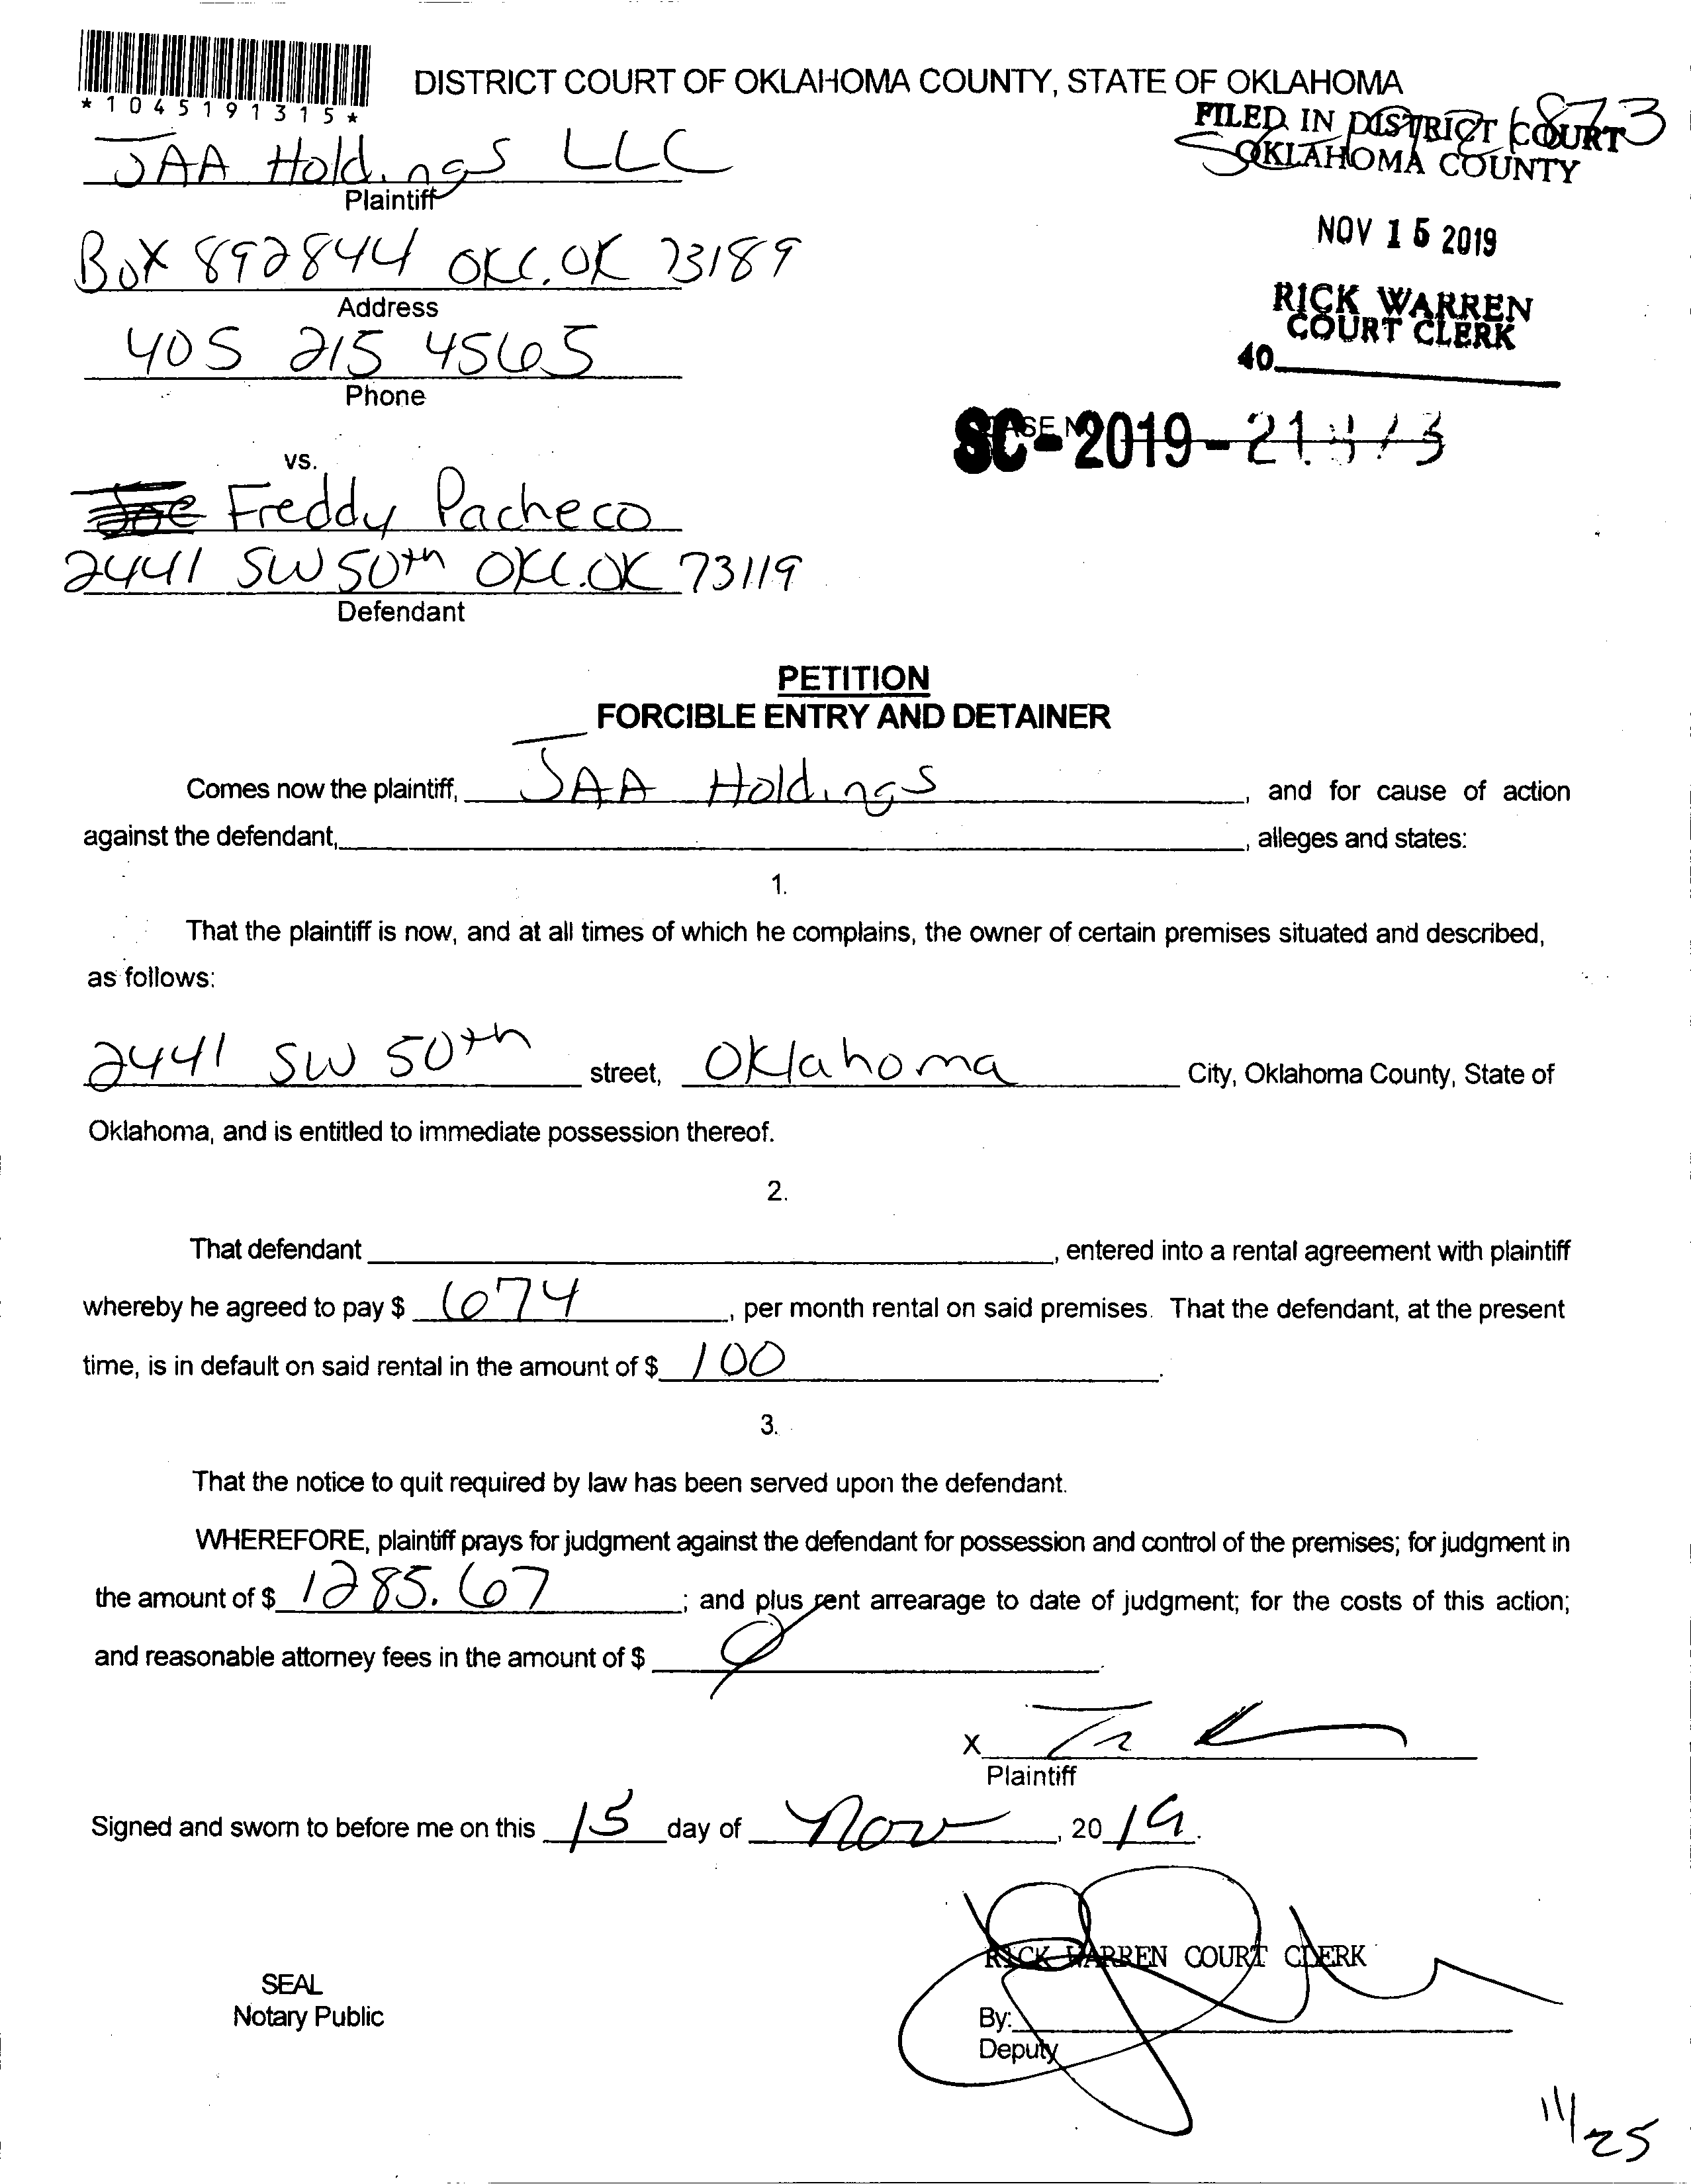 *1045191315*
DISTRICT COURT OF OKLAHOMA COUNTY, STATE OF OKLAHOMA
FILED IN DISTRICT COURT
OKLAHOMA COUNTY
JAA Holdings LLC
Plaintiff
NOV 15 2019
Box 892844 OKC. OK 73189
Address
RICK WARREN
COURT CLERK
405 215 4565
40
Phone
SC-2019-
vs.
Freddy Pacheco
2441 SW 50th OKC. OK 73119
Defendant
PETITION
FORCIBLE ENTRY AND DETAINER
Comes now the plaintiff, JAA Holdings, and for cause of action
against the defendant, , alleges and states:
1.
That the plaintiff is now, and at all times of which he complains, the owner of certain premises situated and described,
as follows:
2441 SW 50th street, Oklahoma City, Oklahoma County, State of
Oklahoma, and is entitled to immediate possession thereof.
2.
That defendant , entered into a rental agreement with plaintiff
whereby he agreed to pay $ 674, per month rental on said premises. That the defendant, at the present
time, is in default on said rental in the amount of $ 100.
3.
That the notice to quit required by law has been served upon the defendant.
WHEREFORE, plaintiff prays for judgment against the defendant for possession and control of the premises; for judgment in
the amount of $ 1285.67; and plus rent arrearage to date of judgment; for the costs of this action;
and reasonable attorney fees in the amount of $ 0.
X
Plaintiff
Signed and sworn to before me on this 15 day of Nov, 2019.
RICK WARREN COURT CLERK
SEAL
Notary Public
By:
Deputy
11/25